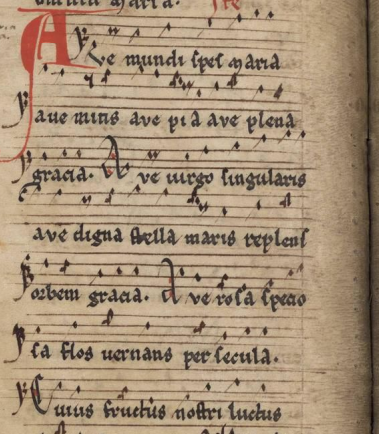 maria.
Ave mundi spes maria
aue mitis ave pia ave plena
gracia. Ave uirgo singularis
ave digna stella maris replens
orbem gracia. Ave rosa specio
sa flos uernans per secula.
Cuius fructus nostri luctus